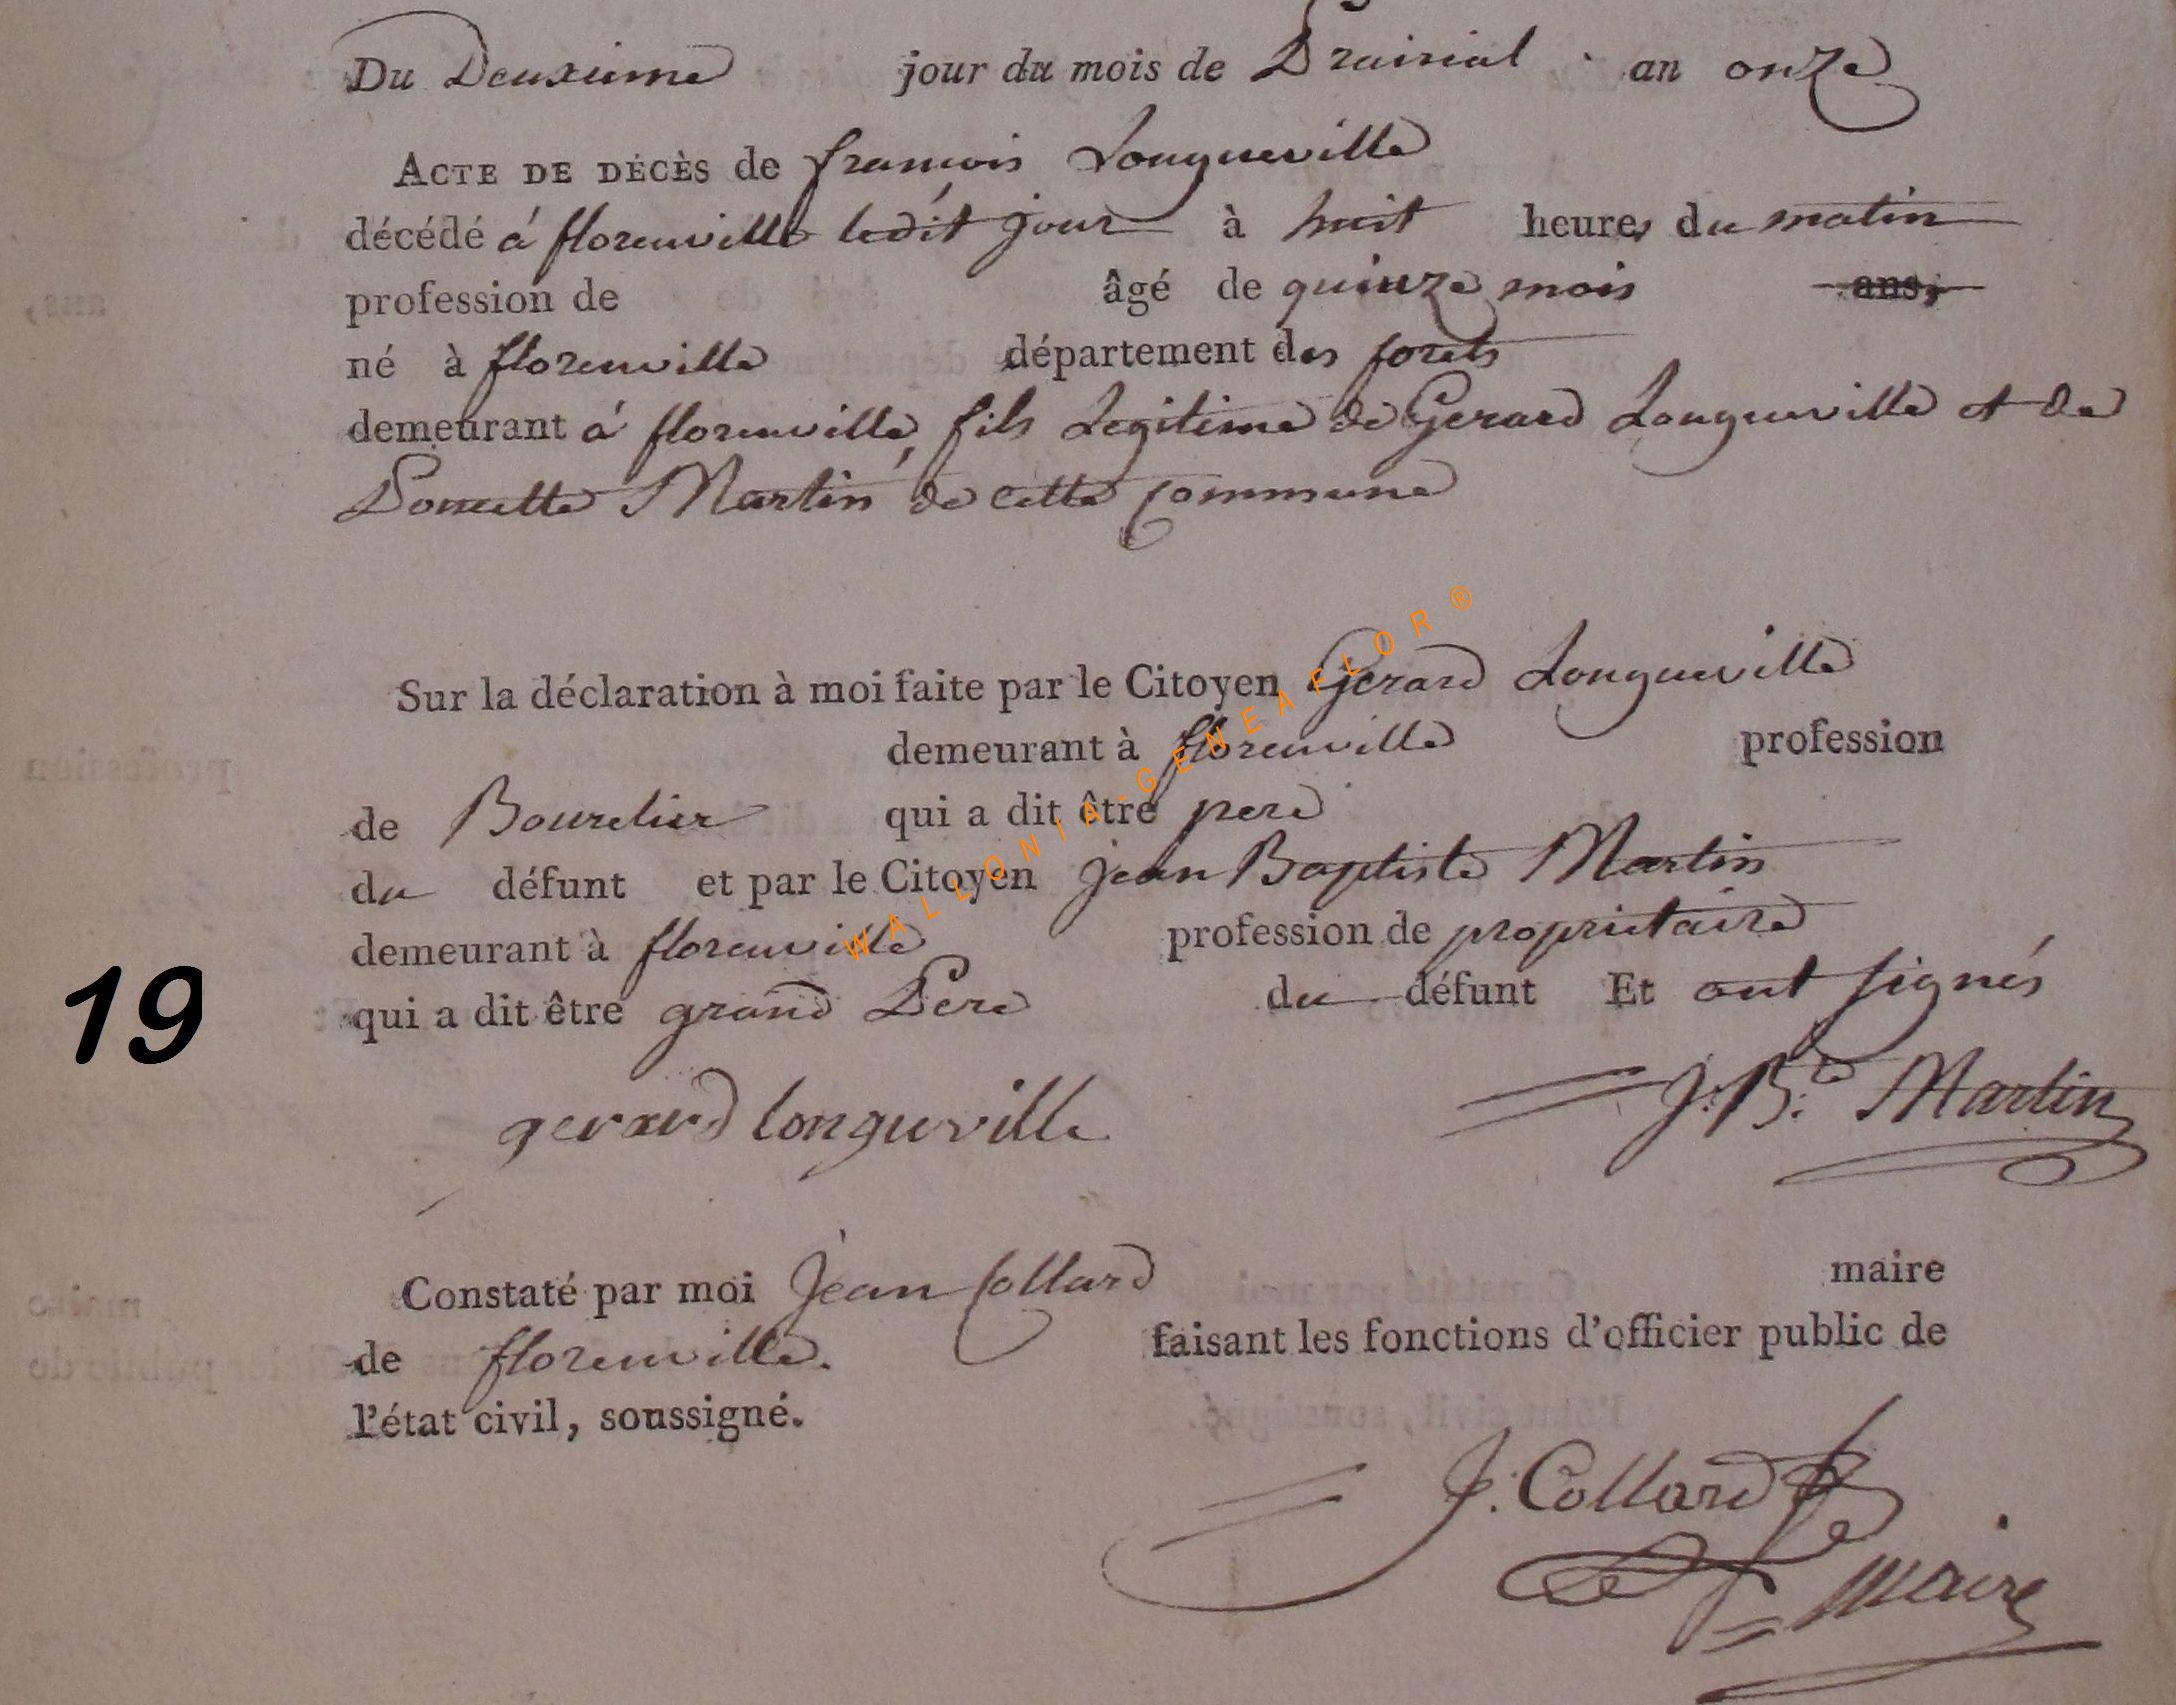 Du Deuxieme jour du mois de Prairial an onze
ACTE DE DÉCÈS de francois Longueville
décédé á florenville ledit jour à huit heures du matin
profession de âgé de quinze mois ans,
né à florenville département des forets
demeurant á florenville, fils Legitime de Gerard Longueville et de
Poncette Martin de cette Commune
Sur la déclaration à moi faite par le Citoyen Gerard Longueville
demeurant à florenville profession
de Bourelier qui a dit être pere
du défunt et par le Citoyen jean Baptiste Martin
demeurant à florenville profession de proprietaire
qui a dit être grand Pere du défunt Et ont signés
gerard longueville J. B.te Martin
19
Constaté par moi Jean Collard maire
de florenville. faisant les fonctions d'officier public de
l'état civil, soussigné.
J. Collard
maire
WALLONIA-GENEAFLOR®